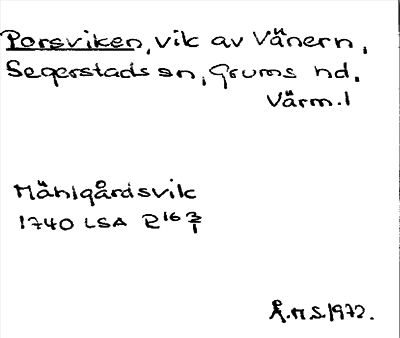 Porsviken, vik av Vänern,
Segerstads sn, Grums hd,
Värm. l
Mählgårdsvik
1740 LSA R16 3/1
Å.M.S. 1972.